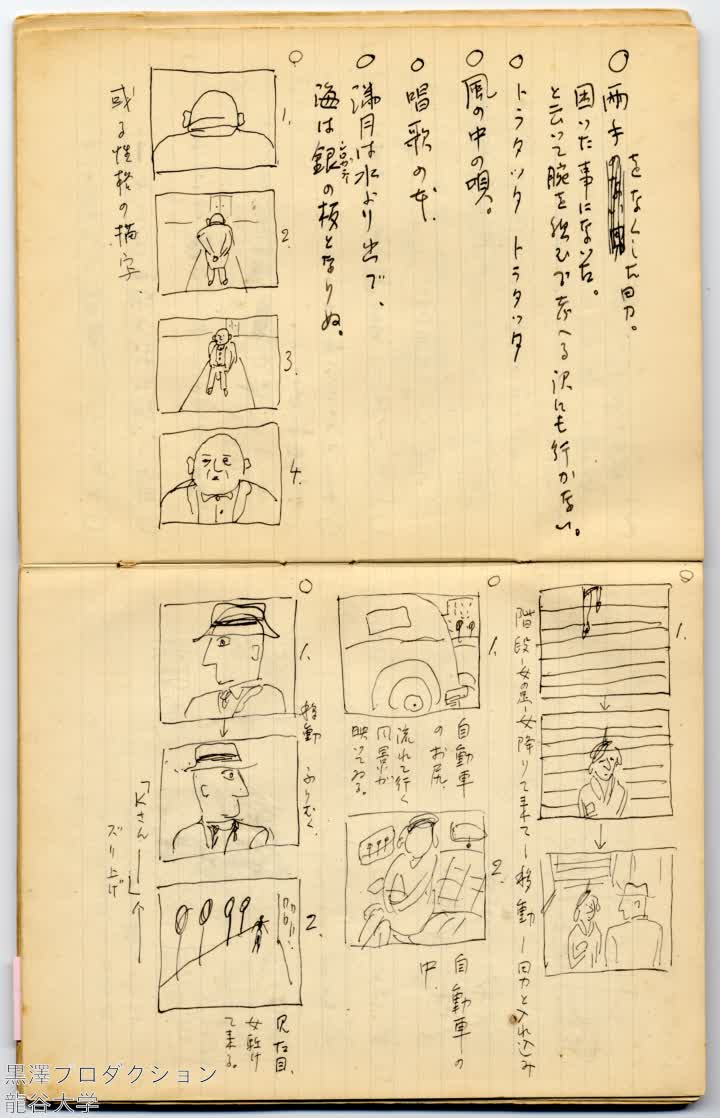 ○ 両手をなくした男。
困った事にないた。
と云いて腕を組んで考へる訳にも行かない。
○ トラタッタ トラタッタ
○ 風の中の唄。
○ 唱歌の本.
○ 満月は水より出で、
海は銀の板となりぬ。
シロガネ
○
1.
2.
3.
4.
或る性格の描写.
○
1.
階段―女の足―女降りて来て―移動―男と入れ込み
○
1.
自動車
のお尻.
流れて行く
風景が
映いてゐる。
2.
自動車の
中.
○
1.
移動 ふりむく.
「Kさん――」
ズリ上げ
2.
見た目、
女駈け
て来る。
黒澤プロダクション
龍谷大学